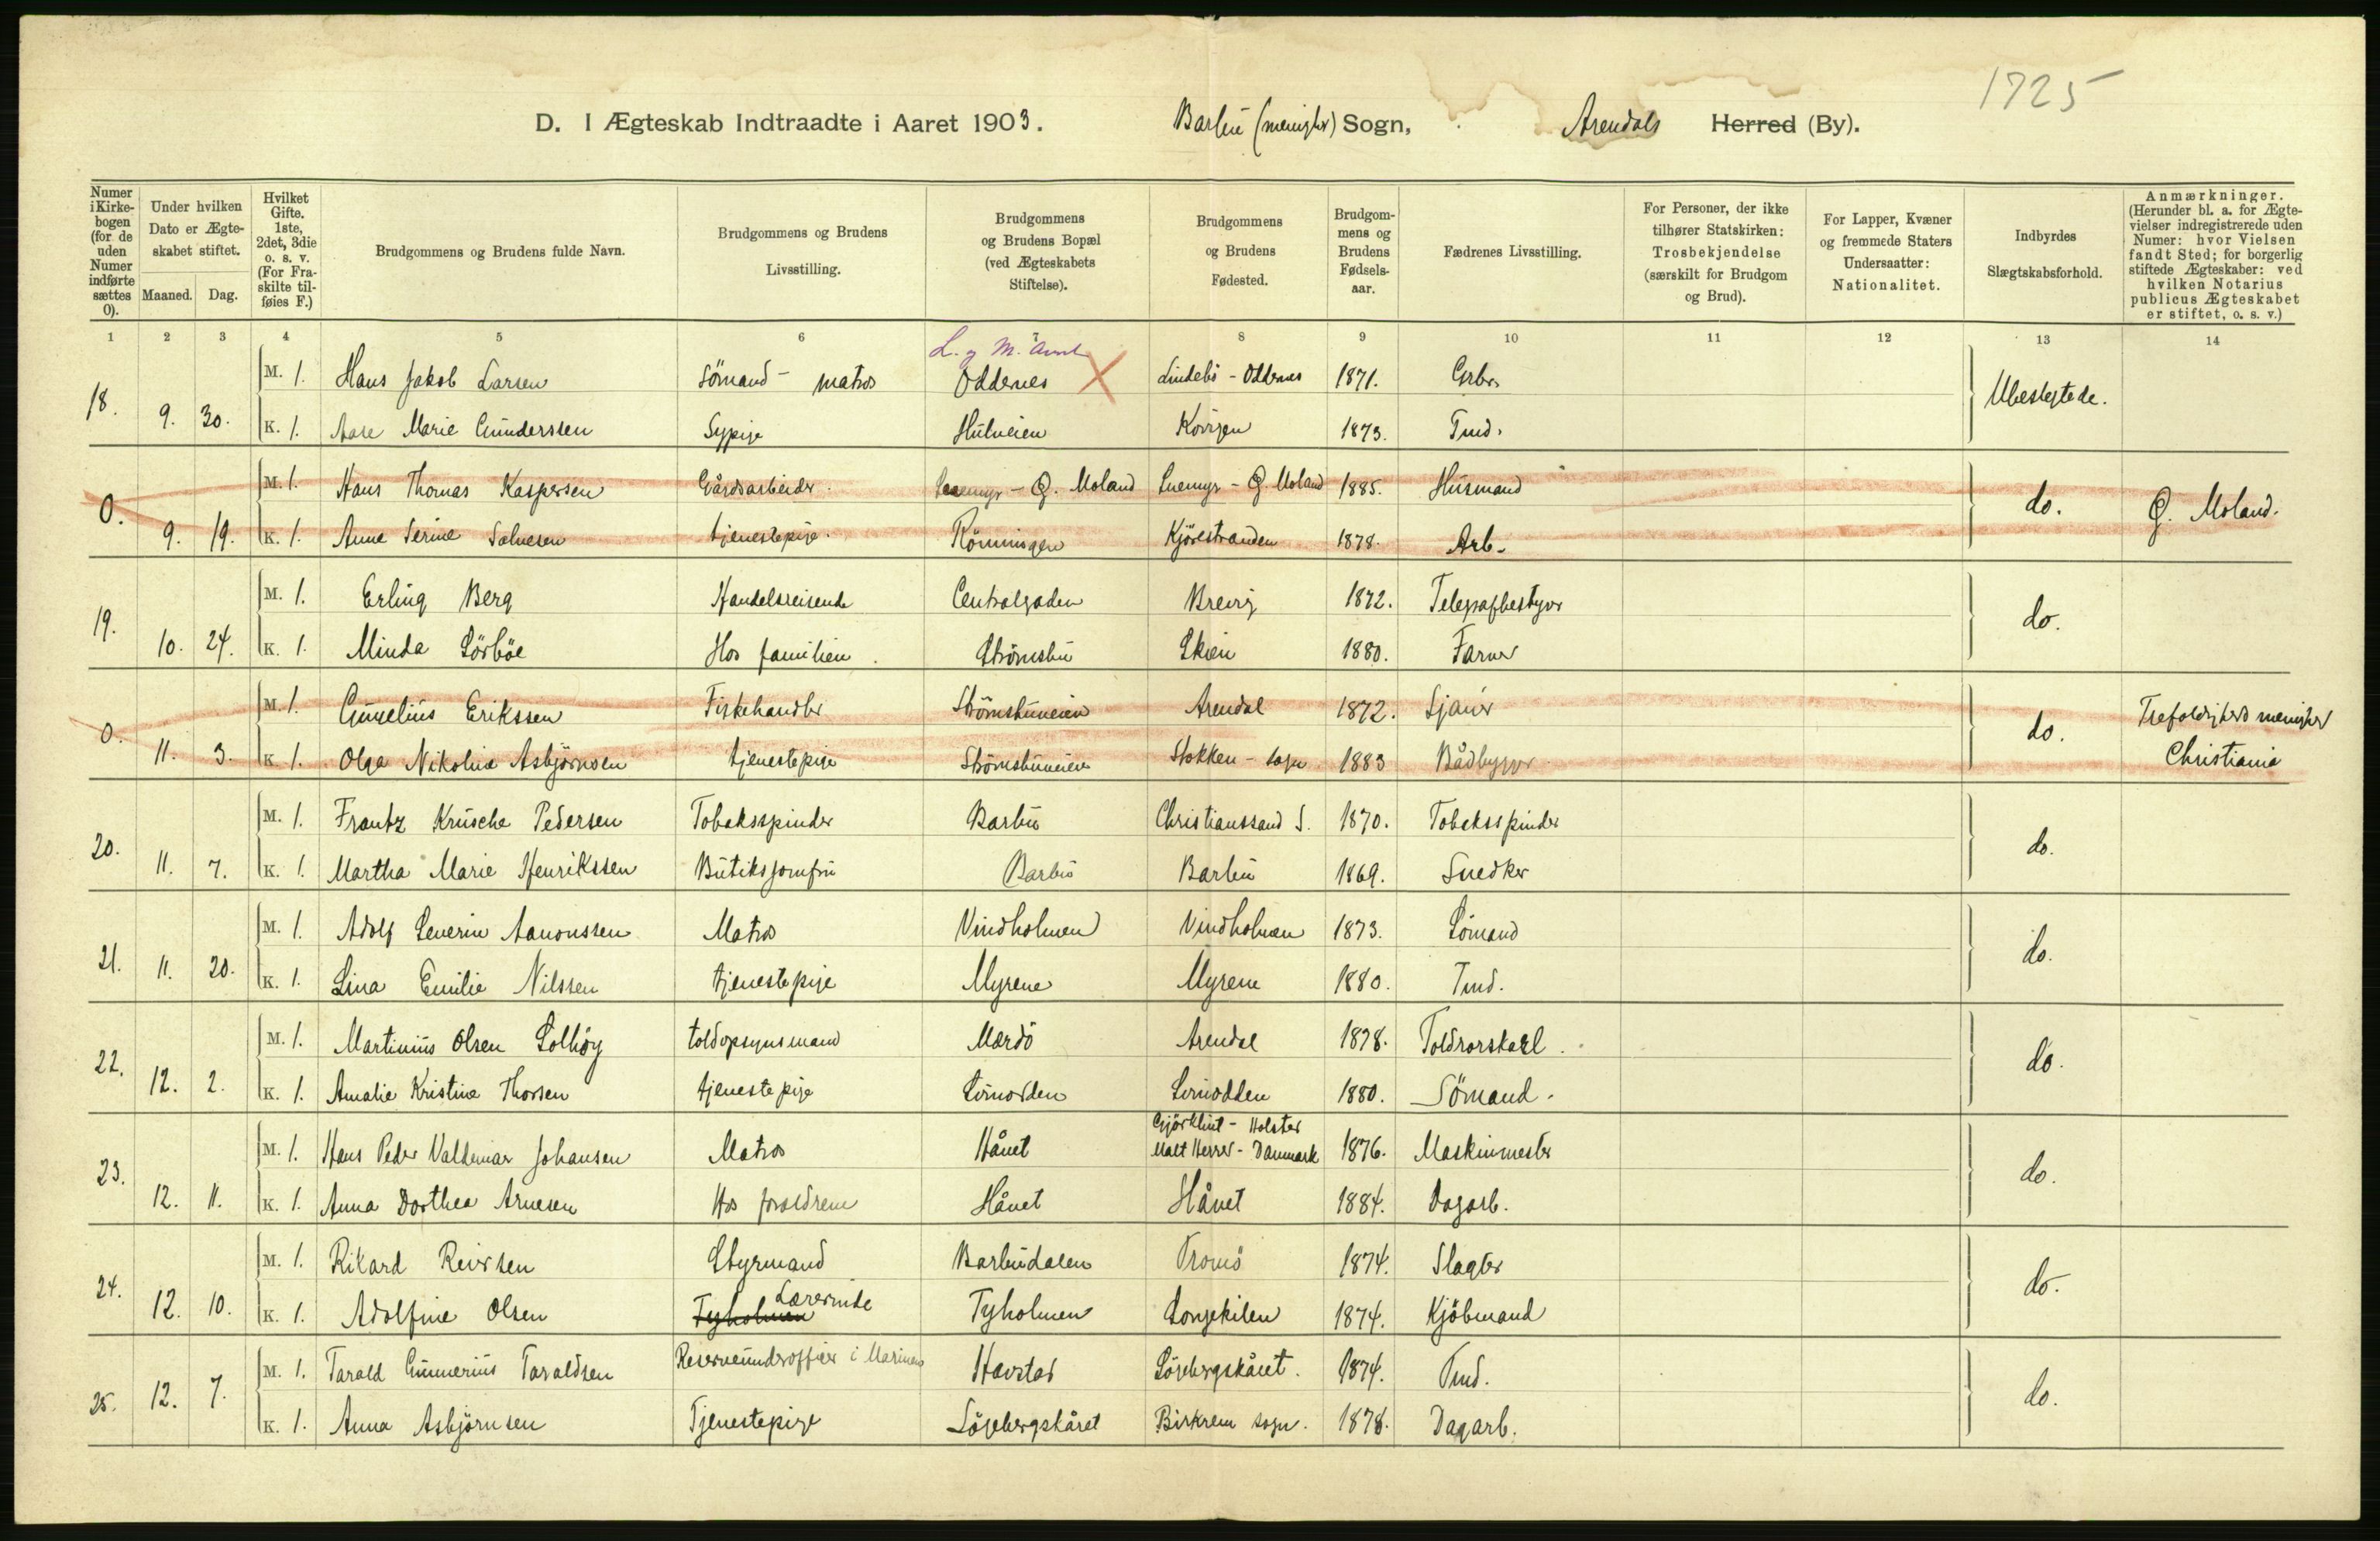 1725
D. I Ægteskab Indtraadte i Aaret 1903. Barbu (menighed) Sogn, Arendals Herred (By).
Numer i Kirkebogen (for de uden Numer indførte sættes 0).
Under hvilken Dato er Ægteskabet stiftet.
Maaned. Dag.
Hvilket Gifte. 1ste, 2det, 3die o. s. v. (For Fraskilte tilføies F.)
Brudgommens og Brudens fulde Navn.
Brudgommens og Brudens Livsstilling.
Brudgommens og Brudens Bopæl (ved Ægteskabets Stiftelse).
Brudgommens og Brudens Fødested.
Brudgommens og Brudens Fødselsaar.
Fædrenes Livsstilling.
For Personer, der ikke tilhører Statskirken: Trosbekjendelse (særskilt for Brudgom og Brud).
For Lapper, Kvæner og fremmede Staters Undersaatter: Nationalitet.
Indbyrdes Slægtskabsforhold.
Anmærkninger. (Herunder bl. a. for Ægtevielser indregistrerede uden Numer: hvor Vielsen fandt Sted; for borgerlig stiftede Ægteskaber: ved hvilken Notarius publicus Ægteskabet er stiftet, o. s. v.)
1 2 3 4 5 6 7 8 9 10 11 12 13 14
L. og M. Amt
18. 9. 30. M. 1. Hans Jakob Larsen Sömand - matros Oddernes Lindebö - Oddernes 1871. Ubeslegtede.
K. 1. Aase Marie Gunderssen Sypige Hulveien 1873. Tmd.
0. 9. 19. M. 1. Hans Thomas Kaspersen Gårdsarbeider. - Ø. Moland - Ø. Moland 1885. Husmand do. Ø. Moland.
K. 1. Anne Serine Salvesen tjenestepige. Rönningen Kjörestranden 1878. Arb.
19. 10. 24. M. 1. Erling Berg Handelsreisende Centralgaden Brevig 1872. Telegrafbestyrer do.
K. 1. Minda Sörböe Hos familien. Strömsbu Skien 1880. Farver
0. 11. 3. M. 1. Gunelius Erikssen Fiskehandler Strömsbuveien Arendal 1872. Sjauer do. Trefoldigheds menighed
K. 1. Olga Nikoline Asbjörnsen tjenestepige Strömsbuveien Stokken - sogn 1883 Bådbygger Christiania
20. 11. 7. M. 1. Frantz Krusche Pedersen Tobaksspinder Barbu Christianssand S. 1870. Tobaksspinder do.
K. 1. Martha Marie Henrikssen Butiksjomfru Barbu Barbu 1869. Snedker
21. 11. 20. M. 1. Adolf Severin Aanonssen Matros Vindholmen Vindholmen 1873. Sömand do.
K. 1. Lina Emilie Nilssen tjenestepige Myrene Myrene 1880. Tmd.
22. 12. 2. M. 1. Martinius Olsen Solhöy toldopsynsmand Mærdö Arendal 1878. Toldrorskarl. do.
K. 1. Amalie Kristine Thorsen tjenestepige Livrodden 1880. Sömand.
23. 12. 11. M. 1. Hans Peder Valdemar Johansen Matros Hånet Gjörklint - Holsted Malt Herred - Danmark 1876. Maskinmester do.
K. 1. Anna Dorthea Arnesen Hos forældrene Hånet Hånet 1884. Dagarb.
24. 12. 10. M. 1. Rikard Reiersen Styrmand Barbudalen Tromö 1874. Slagter do.
K. 1. Adolfine Olsen Tyholmen Lærerinde Tyholmen Songekilen 1874. Kjöbmand
25. 12. 7. M. 1. Tarald Gunnerius Taraldsen Reserveunderofficer i Marinen Havstad 1874. Tmd. do.
K. 1. Anna Asbjörnsen Tjenestepige Birkrem sogn. 1878. Dagarb.